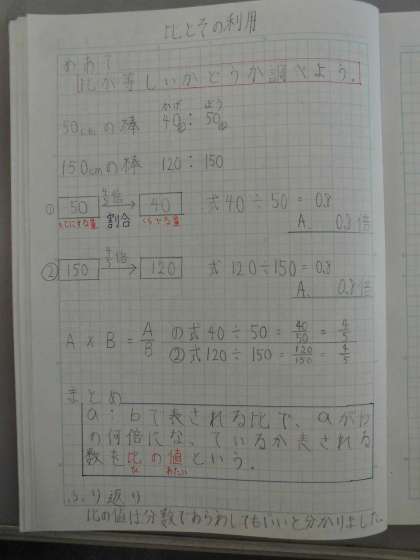 比とその利用
めあて
比が等しいかどうか調べよう。
かげ ぼう
50cmの棒 40cm : 50cm
150cmの棒 120 : 150
4/5倍
① 50 → 40 式 40÷50 = 0.8
もとにする量 割合 くらべる量 A. 0.8倍
4/5倍
② 150 → 120 式 120÷150 = 0.8
A. 0.8倍
A × B = A/B の式 40÷50 = 40/50 = 4/5
②式 120÷150 = 120/150 = 4/5
まとめ
a:bで表される比で、aがb
の何倍になっているか表される
数を比の値という。
ひ あたい
ふり返り
比の値は分数であらわしてもいいと分かりました